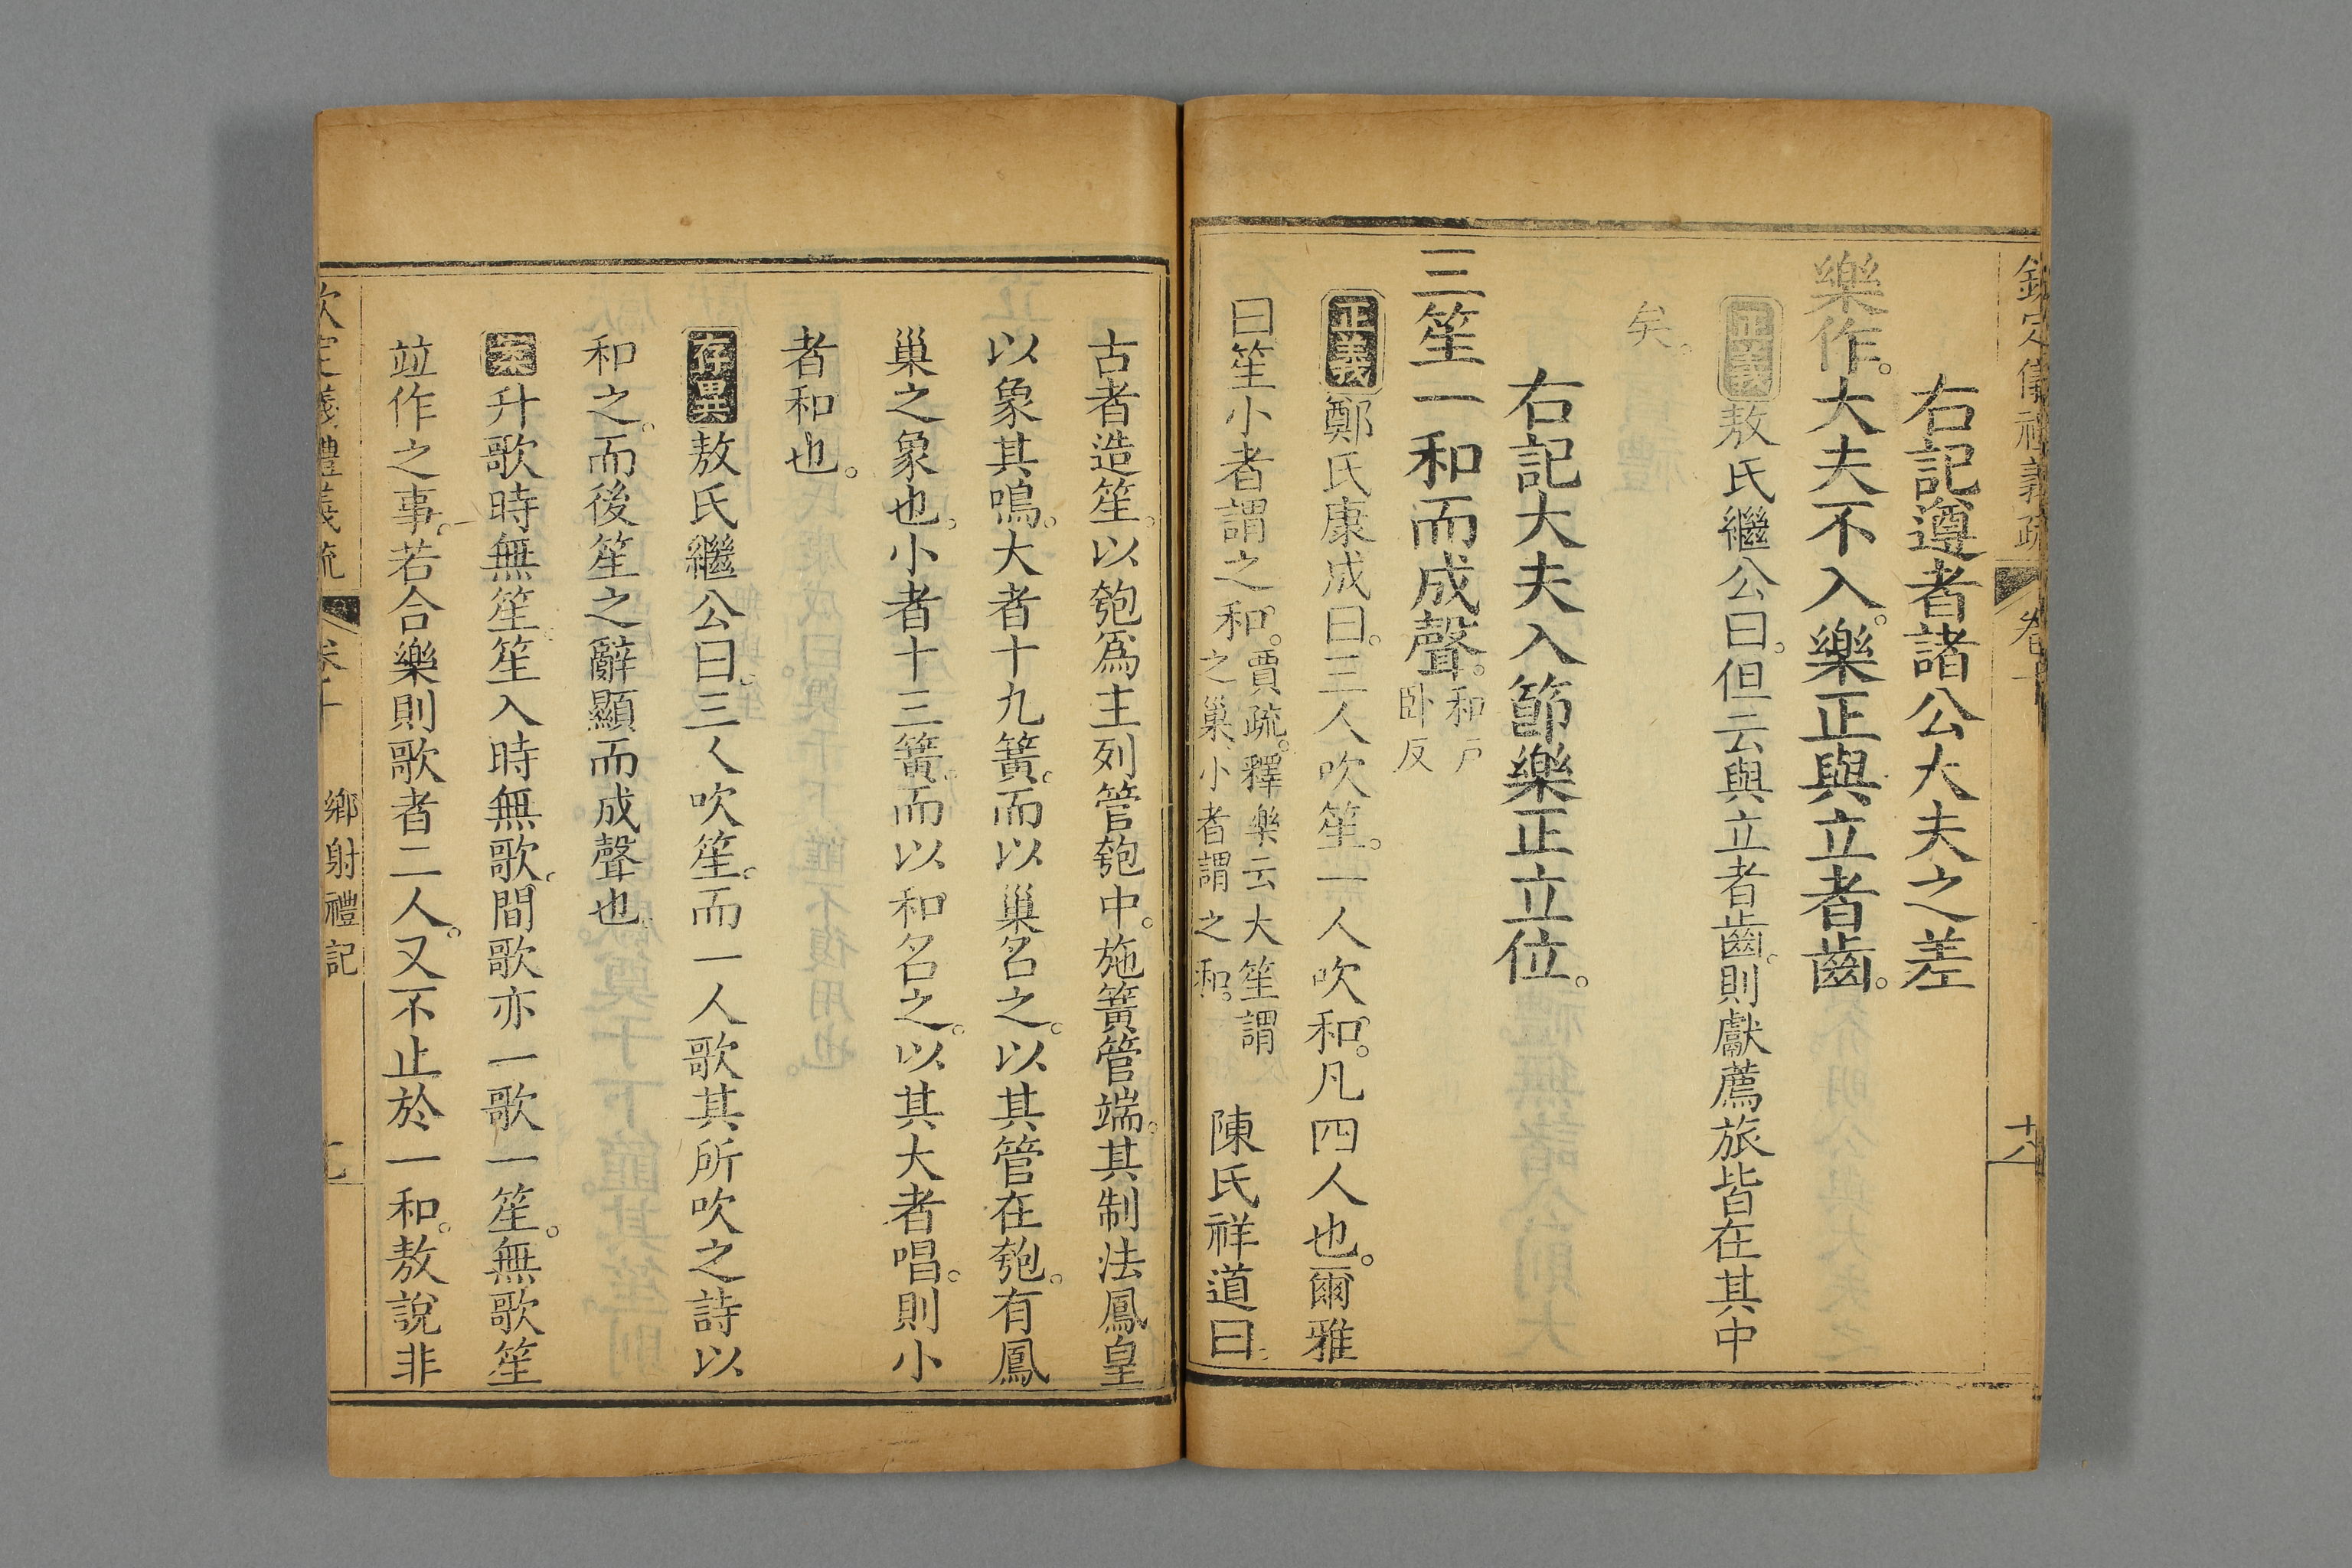 欽定儀禮義疏 卷十 十八
右記遵者諸公大夫之差
樂作。大夫不入。樂正與立者齒。
正義敖氏繼公曰。但云與立者齒。則獻薦旅皆在其中
矣。
右記大夫入節樂正立位。
三笙一和而成聲。和戶
臥反
正義鄭氏康成曰。三人吹笙。一人吹和。凡四人也。爾雅
曰笙小者謂之和。賈疏。釋樂云大笙謂
之巢。小者謂之和。 陳氏祥道曰。
古者造笙。以匏爲主列管匏中。施簧管端。其制法鳳皇
以象其鳴。大者十九簧。而以巢名之。以其管在匏。有鳳
巢之象也。小者十三簧。而以和名之。以其大者唱。則小
者和也。
存異敖氏繼公曰。三人吹笙。而一人歌其所吹之詩以
和之。而後笙之辭顯而成聲也。
案升歌時無笙。笙入時無歌。間歌亦一歌一笙。無歌笙
竝作之事。若合樂則歌者二人。又不止於一和。敖說非
欽定義禮義疏 卷十 鄉射禮記